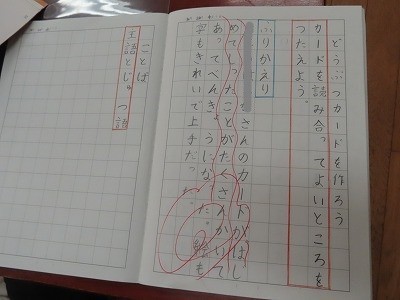 どうぶつカードを作ろう
カードを読み合ってよいところを
つたえよう。
ふりかえり
さんのカードがはじ
めてしったことがたくさんかいて
あってべんきょうになった。絵も
字もきれいで上手だった。
ことば
主語とじゅつ語